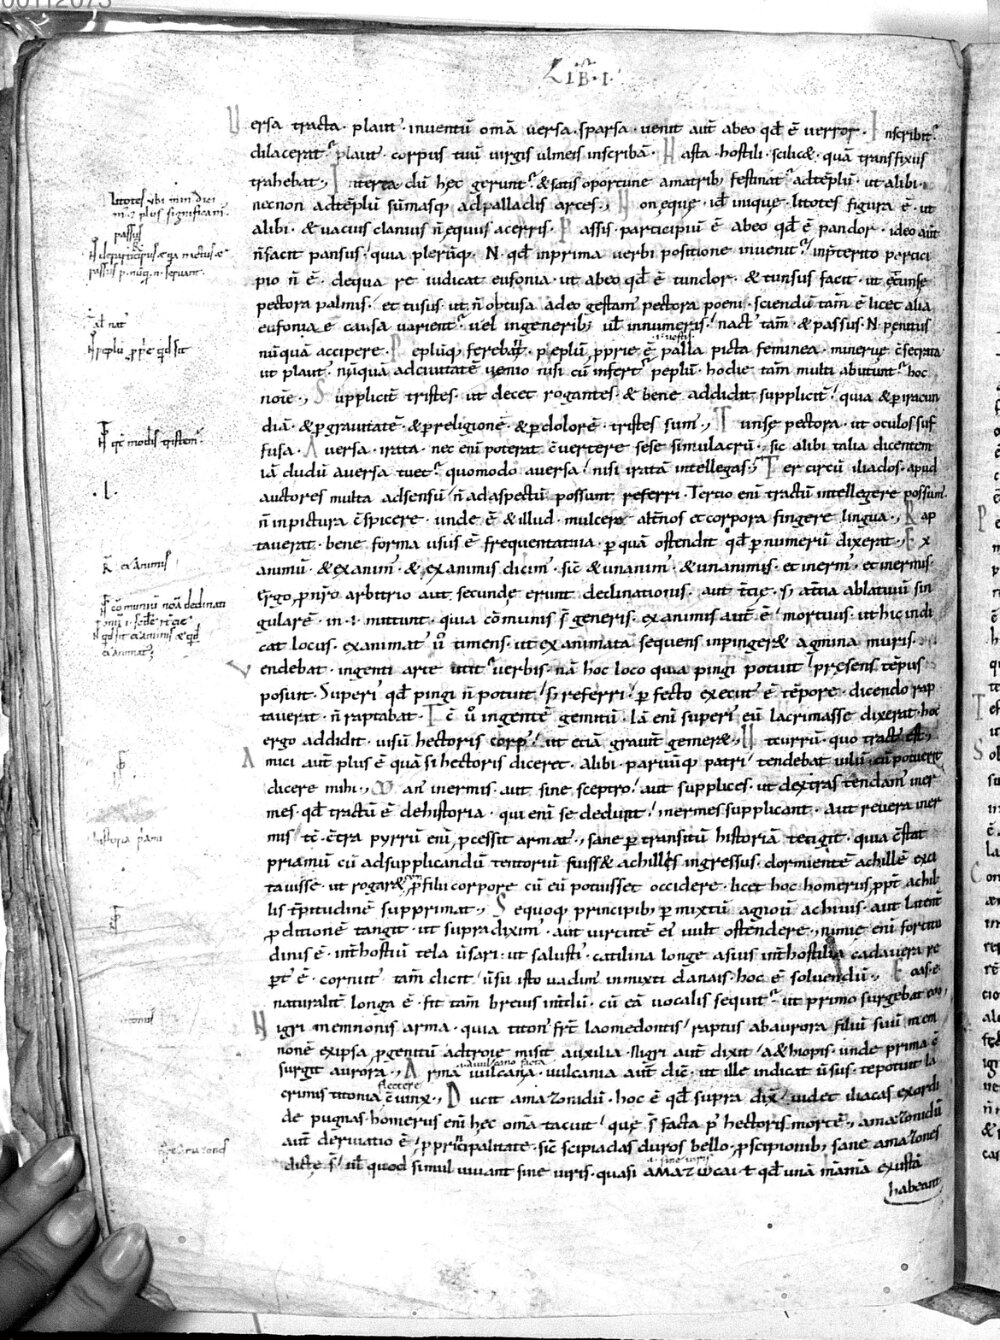 LIB̃·I·
Versa tracta· plaut̃· inuentū omā uersa· sparsa· uenit aut̃ abeo qđ ē uerror· Inscribit᷑
dilacerat᷑ plaut̃· corpus tuū uirgis ulmeis inscribā· Hasta hostili· scilic&· quā transfixus
trahebat·, Interea dū hęc gerunt᷑· & satis oportune a matrib; festinat᷑ ad tēplū· ut alibi·
necnon ad tēplū sūmasq; ad palladis arces·, Non eque· id ē inique· litotes figura ē· ut
alibi· & uacuis clanius ñ equus acerris· Passis· participiū ē abeo qđ ē pandor· ideo aut̃
ñ facit pansus· quia plerūq; N· qđ in prima uerbi positione inuenit᷑ in p̃terito partici
pio ñ ē· de qua re iudicat eufonia· ut abeo qđ ē tundor· & tunsus facit· ut
pectora palmis· et tusus ut ñ obtusa adeo gestam' pectora poeni· sciendū tam̃ ē licet alia
eufonia ē causa uarient᷑ uel in generib; ul̃ in numeris· nact᷑ tam̃ & passus· N penitus
nūquā accipere· Peplūq; ferebant· peplū ꝓprie ē palla picta feminea· minerue c̃secrata
ut plaut̃· nūquā ad ciuitatē uenio nisi cū infert᷑ peplū· hodie tam̃ multi abutunt᷑ hoc
noīe·, Suppliciť tristes· ut decet rogantes· & bene addidit suppliciť· quia & ꝑ iracun
diā· & ꝑ grauitatē· & ꝑ religionē· & ꝑ dolorē· tristes sum'·, Tunse pectora· ut oculos suf
fusa· Auersa· irata· nec enī poterat c̃uertere sese simulacrū· sic alibi talia dicentem
iā dudū auersa tuet᷑· quomodo auersa· nisi iratā intellegas·, Ter circū iliados· apud
auctores multa ad sensū ñ ad aspectū possunt referri· Tertio enī tractū intellegere possum'
ñ in pictura c̃spicere· unde ē & illud· mulcere alt̃nos et corpora fingere lingua·, Rap
tauerat· bene forma usus ē frequentatiua· ꝑ quā ostendit qđ ꝑ numerū dixerat·, Ex
animū· & exanim'· & exanimis dicim'· sic̃ & unanim'· & unanimis· et inerm'· et inermis·
Ergo ꝓ nr̃o arbitrio aut secunde erunt declinationis· aut t̃cię· s; at̃cia ablatiuū sin
gularē· in· i· mittunt· quia cōmunis s̃ generis· exanimis aut̃ ē· mortuus· ut hic indi
cat locus· exanimat' ũ timens· ut exanimata sequens inpinger& agmina muris·
Vendebat· ingenti arte utit᷑ uerbis· nā hoc loco quia pingi potuit p̃sens tēpus
posuit· Superi' qđ pingi ñ potuit· s; referri· ꝑfecto executꝰ ē tēpore· dicendo rap
tauerat· ñ raptabat· Tc̃ ũ ingentē gemitū· Iā enī superi' eū lacrimasse dixerat· hoc
ergo addidit· uisū hectoris corp'· ut etiā grauit̃ gemer&·, Ut currū· quo tract' est·,
Amici· aut̃ plus ē quā si hectoris diceret· alibi· paruūq; patri· tendebat iulū· cū potuere
dicere mihi·, Man' inermis· aut sine sceptro· aut supplices· ut dextras tendam' iner
mes· qđ tractū ē de historia· qui enī se dedunt· inermes supplicant· aut reuera iner
mis· tc̃· c̃tra pyrrū enī ꝓcessit armat'·, sane ꝑ transitū historiā tetigit· quia c̃stat
priamū cū ad supplicandū tentoriū fuiss& achillis ingressus· dormientē achillē exci
tauisse· ut rogar& ꝓ filii corpore cū eū potuisset occidere· licet hoc homerus ꝓpt̃ achil
lis t̃pitudinē supprimat·, Se quoq; principib; ꝑmixtū agnouit achiuis· aut latent̃
ꝓditionē tangit· ut supra dixim'· aut uirtutē ei' uult ostendere· nimie enī fortitu
dinis ē· int̃ hostiū tela ũsari· ut salusti'· catilina longe a suis int̃ hostiliā cadauera re
pt' ē· cornut' tam̃ dicit ũsu isto uadim' inmixti danais· hoc ē soluendū·, Eoas·e
naturalit̃ longa ē· fit tam̃ breuis int̃dū· cū eā uocalis sequit᷑· ut primo surgebat eoo·
Nigri memnonis arma· quia titon' fr̃t laomedontis· raptus ab aurora filiū suū mem
nonē ex ipsa ꝓgenitū ad troię misit auxilia· Nigri aut̃ dixit· a&hiopis· unde prima ē
surgit aurora·, Arma uulcana· uulcania aut̃ dic̃· ut ille indicat ũsus· te potuit la
crimis titonia c̃iunx·, Ducit amazonidū· hoc ē qđ supra dix̃· uidet iliacas ex ordi
de pugnas· homerus enī hęc om̃a tacuit· que s̃ facta ꝑ hectoris mortē·, amazonidū
aut̃ deriuatio ē· ꝓ principalitate· sic̃ scipiadas duros bello· ꝓ scipionib;· sane amazones
dicte s̃· ul̃ quod simul uiuant sine uiris· quasi amazωcai· t̃ qđ unā mamā exustā
habeant
litotes ubi min' dici
m'· ⁊ plus significam'·
passus
passus p· nūq· n· seruant·
peplū ꝓprie qđ sit
·I·
exanimis
historia priami